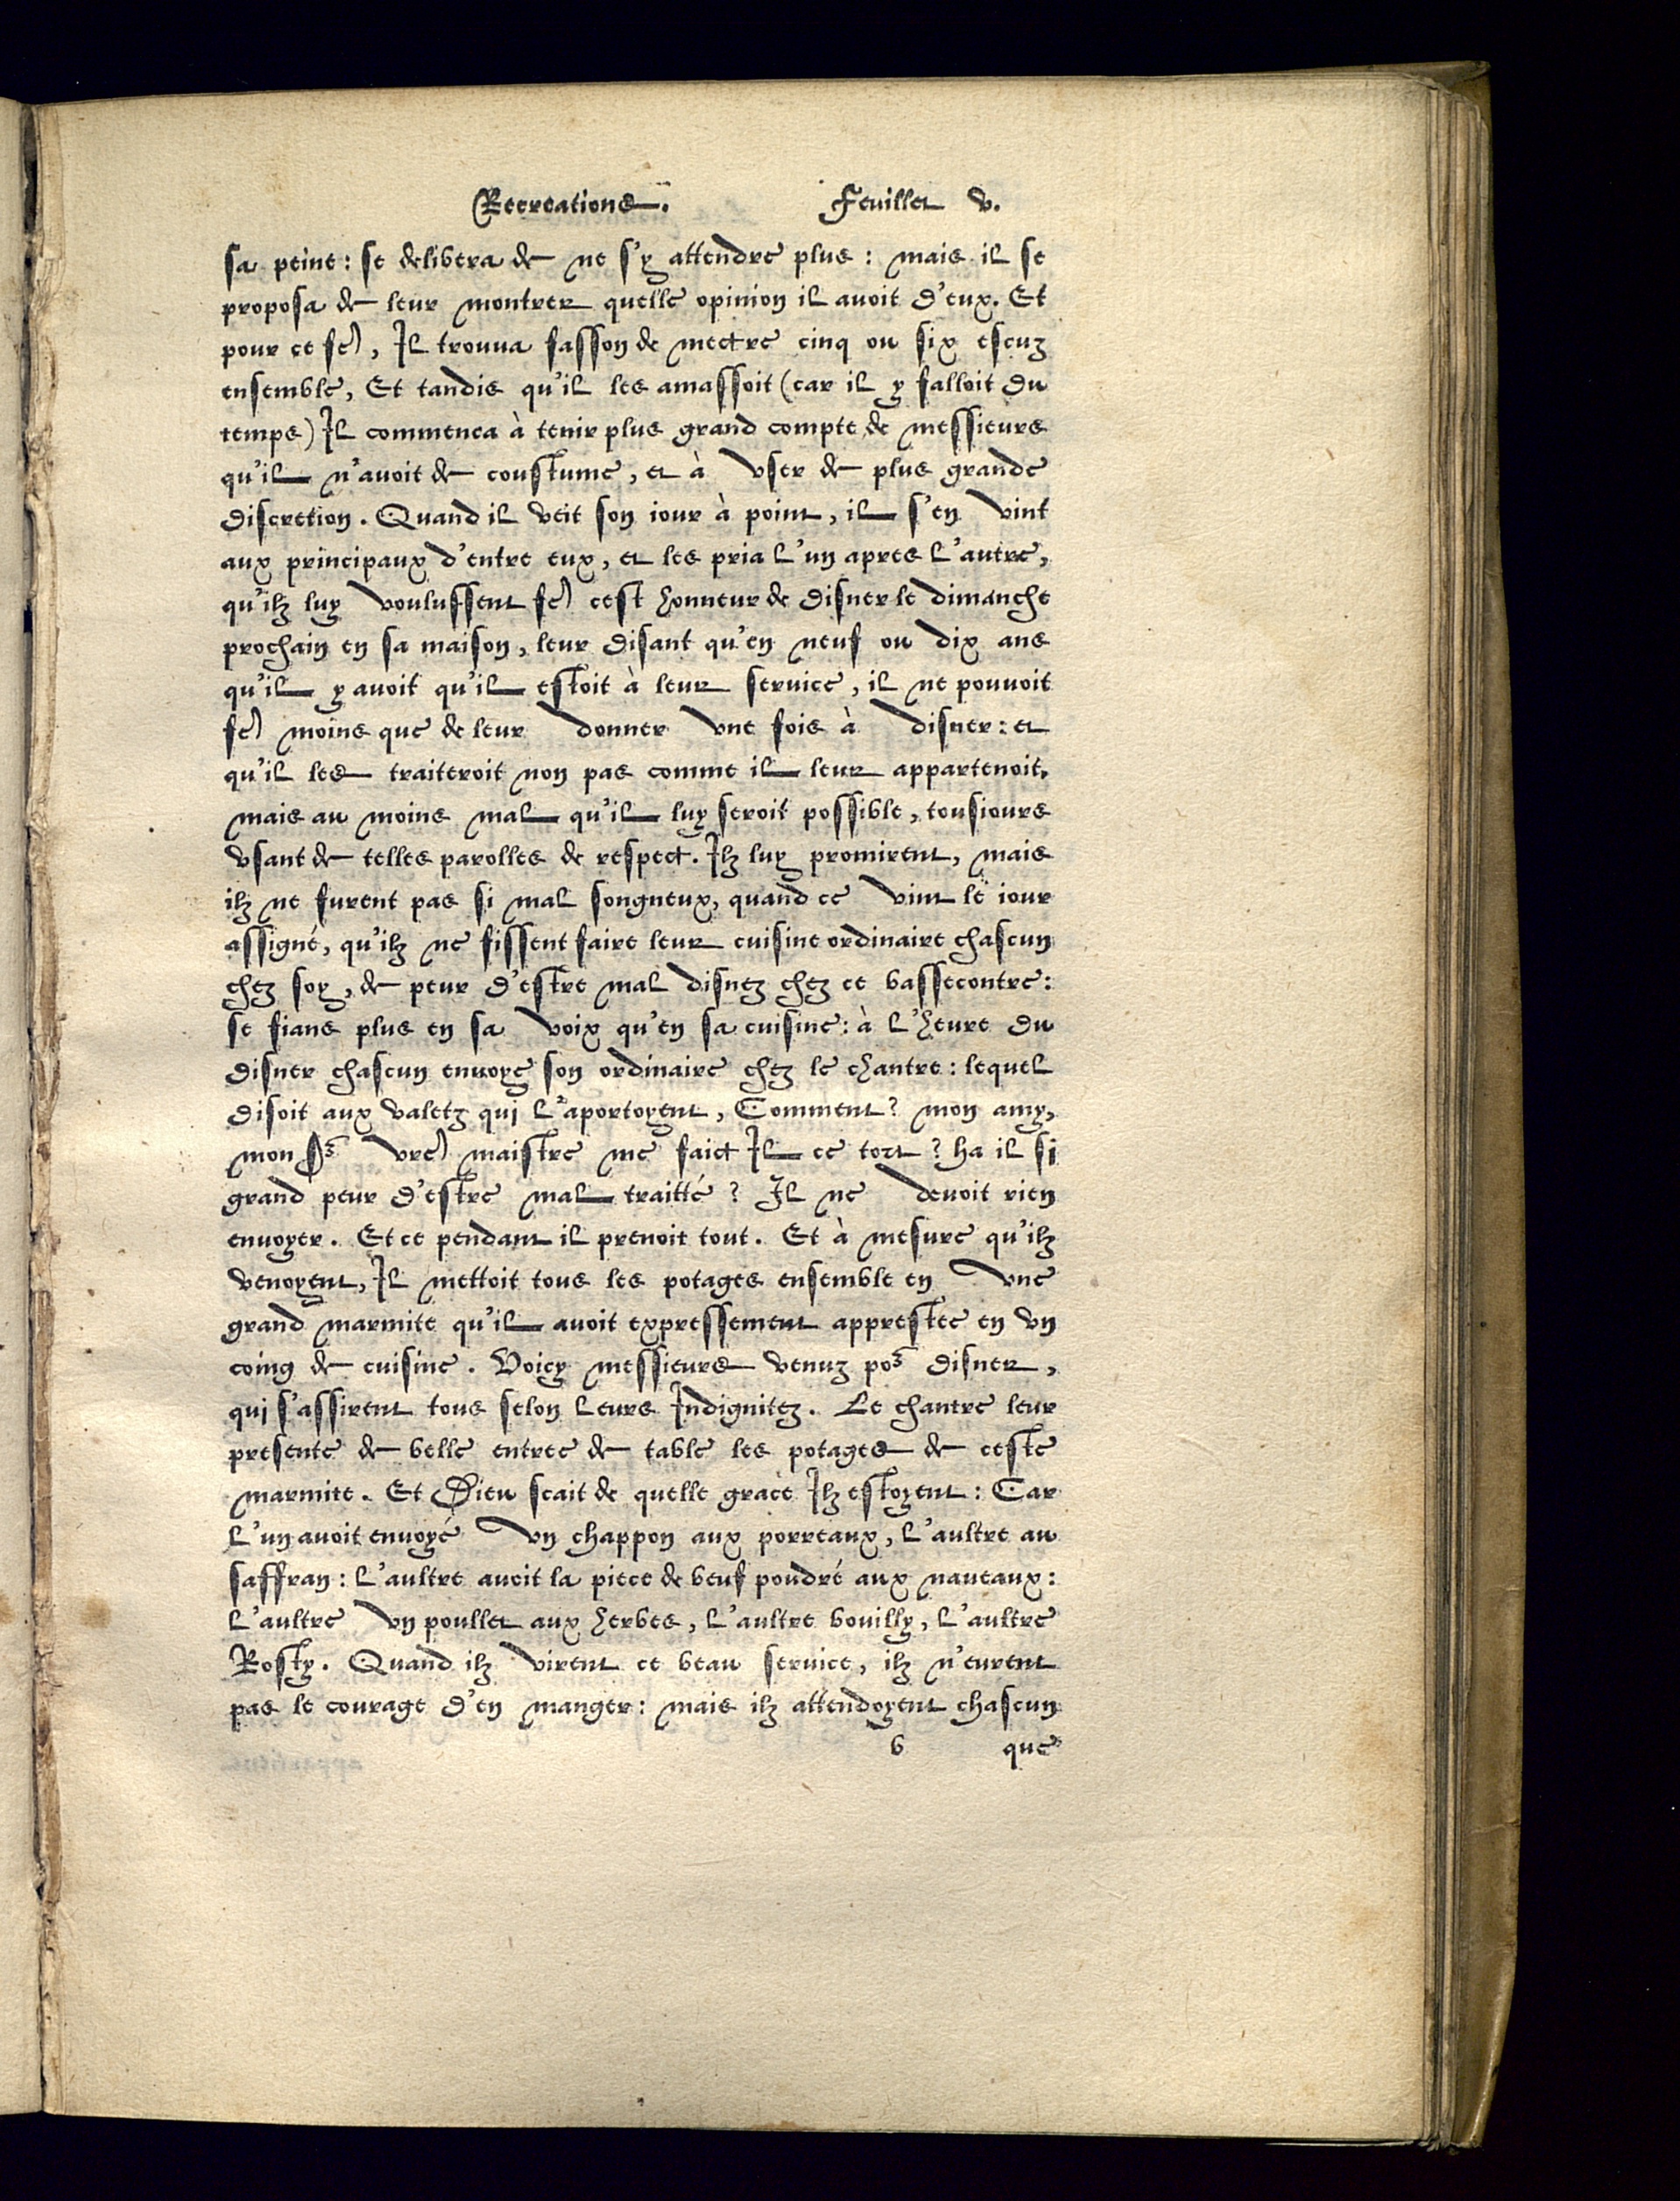 Recreations. Feuillet v.
sa peine: se delibera de ne s'y attendre plus: mais il se
proposa de leur montrer quelle opinion il auoit d'eux. Et
pour ce fe), Il trouua fasson de mectre cinq ou six escuz
ensemble, Et tandis qu'il les amassoit (car il y falloit du
temps) Il commenca à tenir plus grand compte de messieurs
qu'il n'auoit de coustume, et à vser de plus grande
discretion. Quand il veit son iour à point, il s'en vint
aux principaux d'entre eux, et les pria l'un apres l'autre,
qu'ilz luy voulussent fe) cest honneur de disner le dimanche
prochain en sa maison, leur disant qu'en neuf ou dix ans
qu'il y auoit qu'il estoit à leur seruice, il ne pouuoit
fe) moins que de leur donner vne fois à disner: et
qu'il les traiteroit non pas comme il leur appartenoit,
mais au moins mal qu'il luy seroit possible, tousiours
vsant de telles parolles de respect. Ilz luy promirent, mais
ilz ne furent pas si mal songneux, quand ce vint le iour
assigné, qu'ilz ne fissent faire leur cuisine ordinaire chascun
chez soy, de peur d'estre mal disnez chez ce bassecontre:
se fians plus en sa voix qu'en sa cuisine: à l'heure du
disner chascun enuoye son ordinaire chez le chantre: lequel
disoit aux valetz qui l'aportoyent, Comment? mon amy,
mon Sr vre) maistre me faict Il ce tort? ha il si
grand peur d'estre mal traitté? Il ne deuoit rien
enuoyer. Et ce pendant il prenoit tout. Et à mesure qu'ilz
venoyent, Il mettoit tous les potages ensemble en vne
grand marmite qu'il auoit expressement apprestee en vn
coing de cuisine. Voicy messieurs venuz por disner,
qui s'assirent tous selon leurs Indignitez. Le chantre leur
presente de belle entree de table les potages de ceste
marmite. Et Dieu scait de quelle grace Ilz estoyent: Car
l'un auoit enuoyé vn chappon aux porreaux, l'aultre au
saffran: l'aultre auoit la piece de beuf poudré aux naueaux:
l'aultre vn poullet aux herbes, l'aultre bouilly, l'aultre
Rosty. Quand ilz virent ce beau seruice, ilz n'eurent
pas le courage d'en manger: mais ilz attendoyent chascun
b que